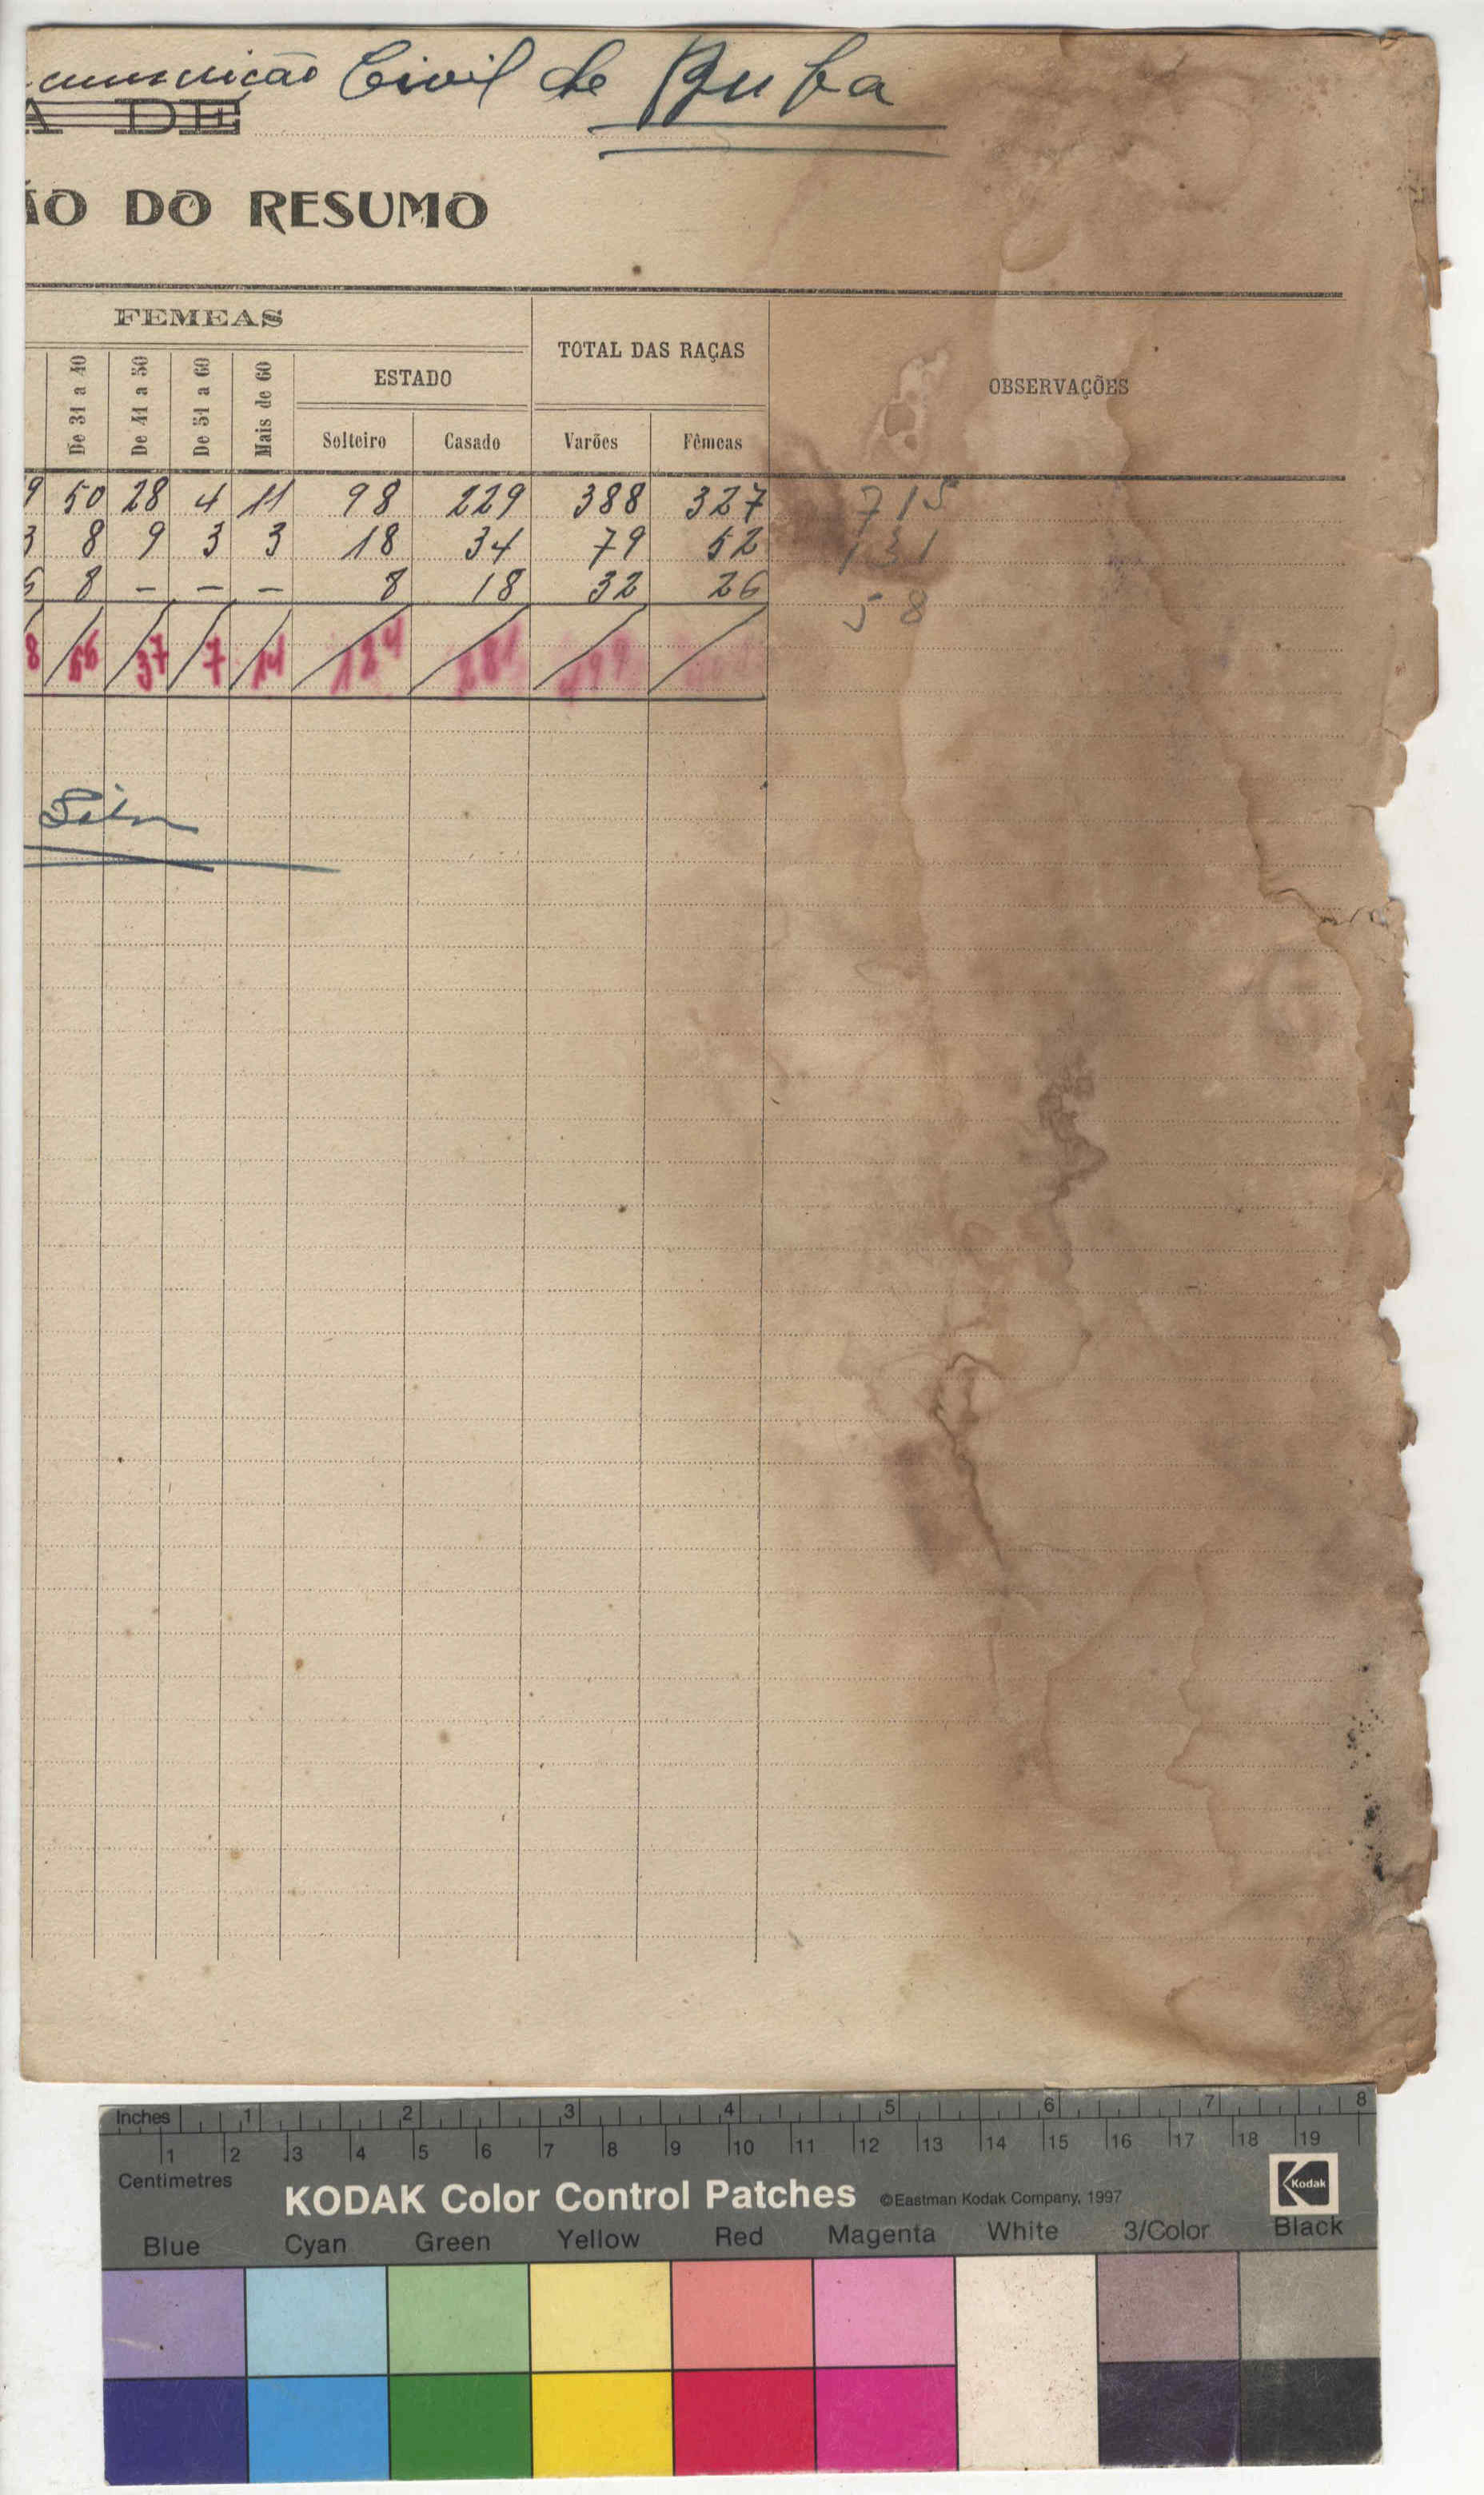 Civil de Buba
A DE
ÃO DO RESUMO
FEMEAS
TOTAL DAS RAÇAS
OBSERVAÇÕES
De 31 a 40 De 41 a 50 De 51 a 60 Mais de 60
ESTADO
Solteiro Casado Varões Fêmeas
9 50 28 4 11 98 229 388 327 715
3 8 9 3 3 18 34 79 52 131
8 - - - 8 18 32 26 58
8 37 7 14
Silva
Inches 1 2 3 4 5 6 7 8
1 2 3 4 5 6 7 8 9 10 11 12 13 14 15 16 17 18 19
Centimetres
KODAK Color Control Patches ©Eastman Kodak Company, 1997 Kodak
Blue Cyan Green Yellow Red Magenta White 3/Color Black